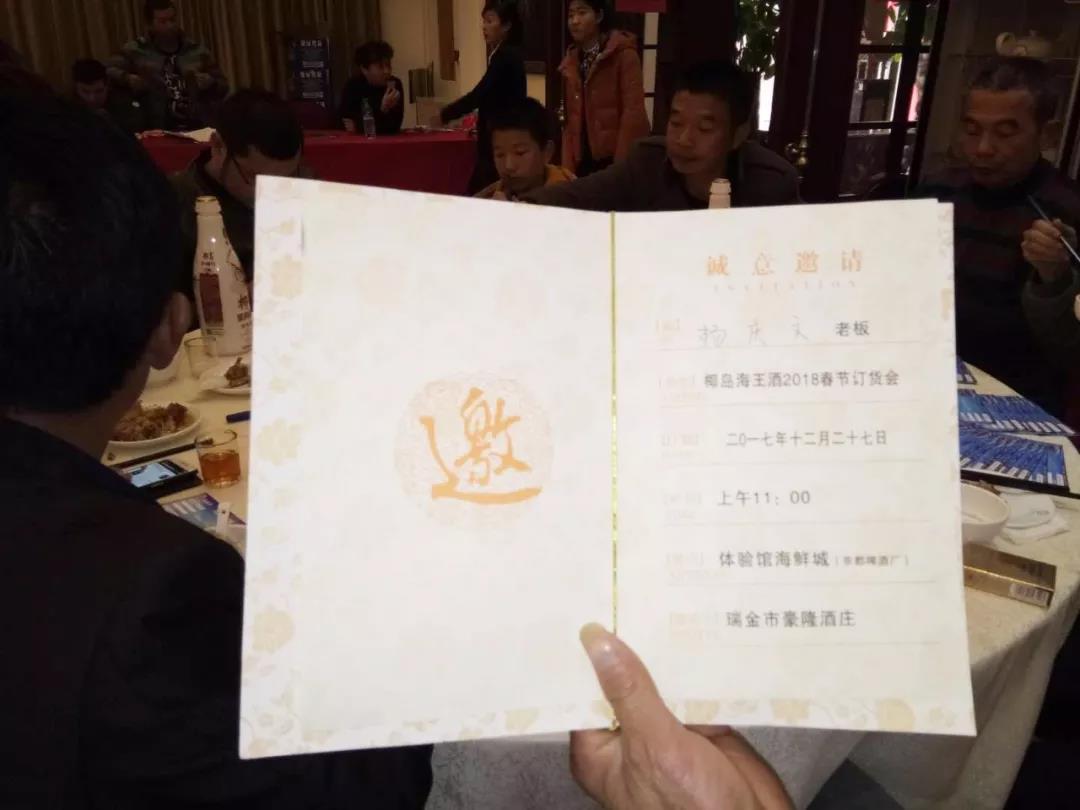 邀
诚意邀请
INVITATION
杨庆文 老板
椰岛海王酒2018春节订货会
二0一七年十二月二十七日
上午11：00
体验馆海鲜城
瑞金市豪隆酒庄